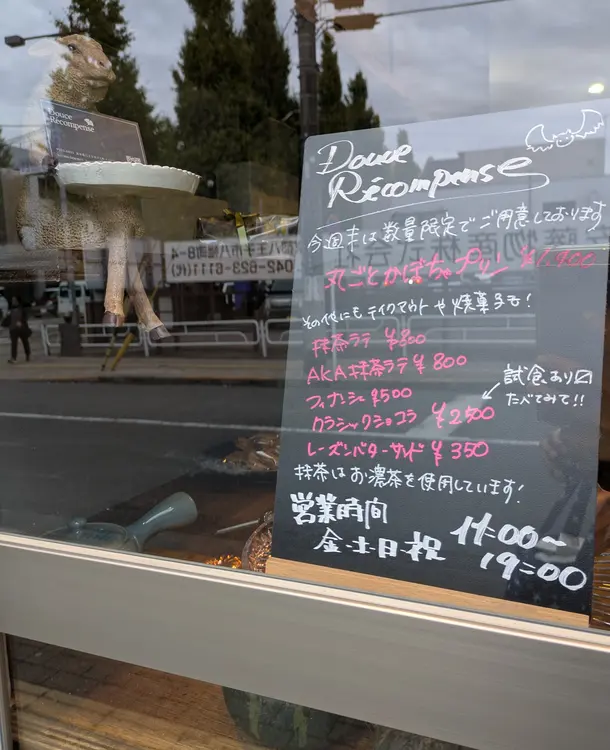 Douce
Récompense
Douce
Récompense
今週末は数量限定でご用意しております
丸ごとかぼちゃプリン ¥1,900
その他にもテイクアウトや焼菓子も!
抹茶ラテ ¥800
AKA抹茶ラテ ¥800
フィナンシェ ¥500
試食あり〼
たべてみて!!
クラシックショコラ ¥2500
レーズンバターサンド ¥350
抹茶はお濃茶を使用しています!
営業時間
金・土・日・祝 11:00〜
19:00
八王子市八幡町8-4
042-623-6111(代)
物産株式会社